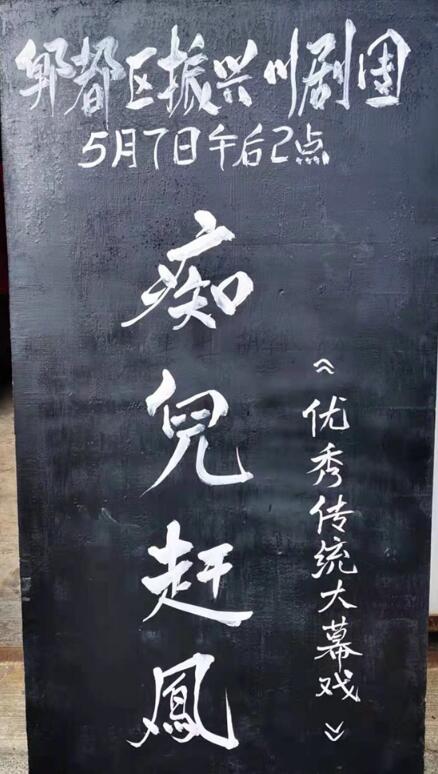 郫都区振兴川剧团
5月7日午后2点
痴兒赶鳳
《优秀传统大幕戏》